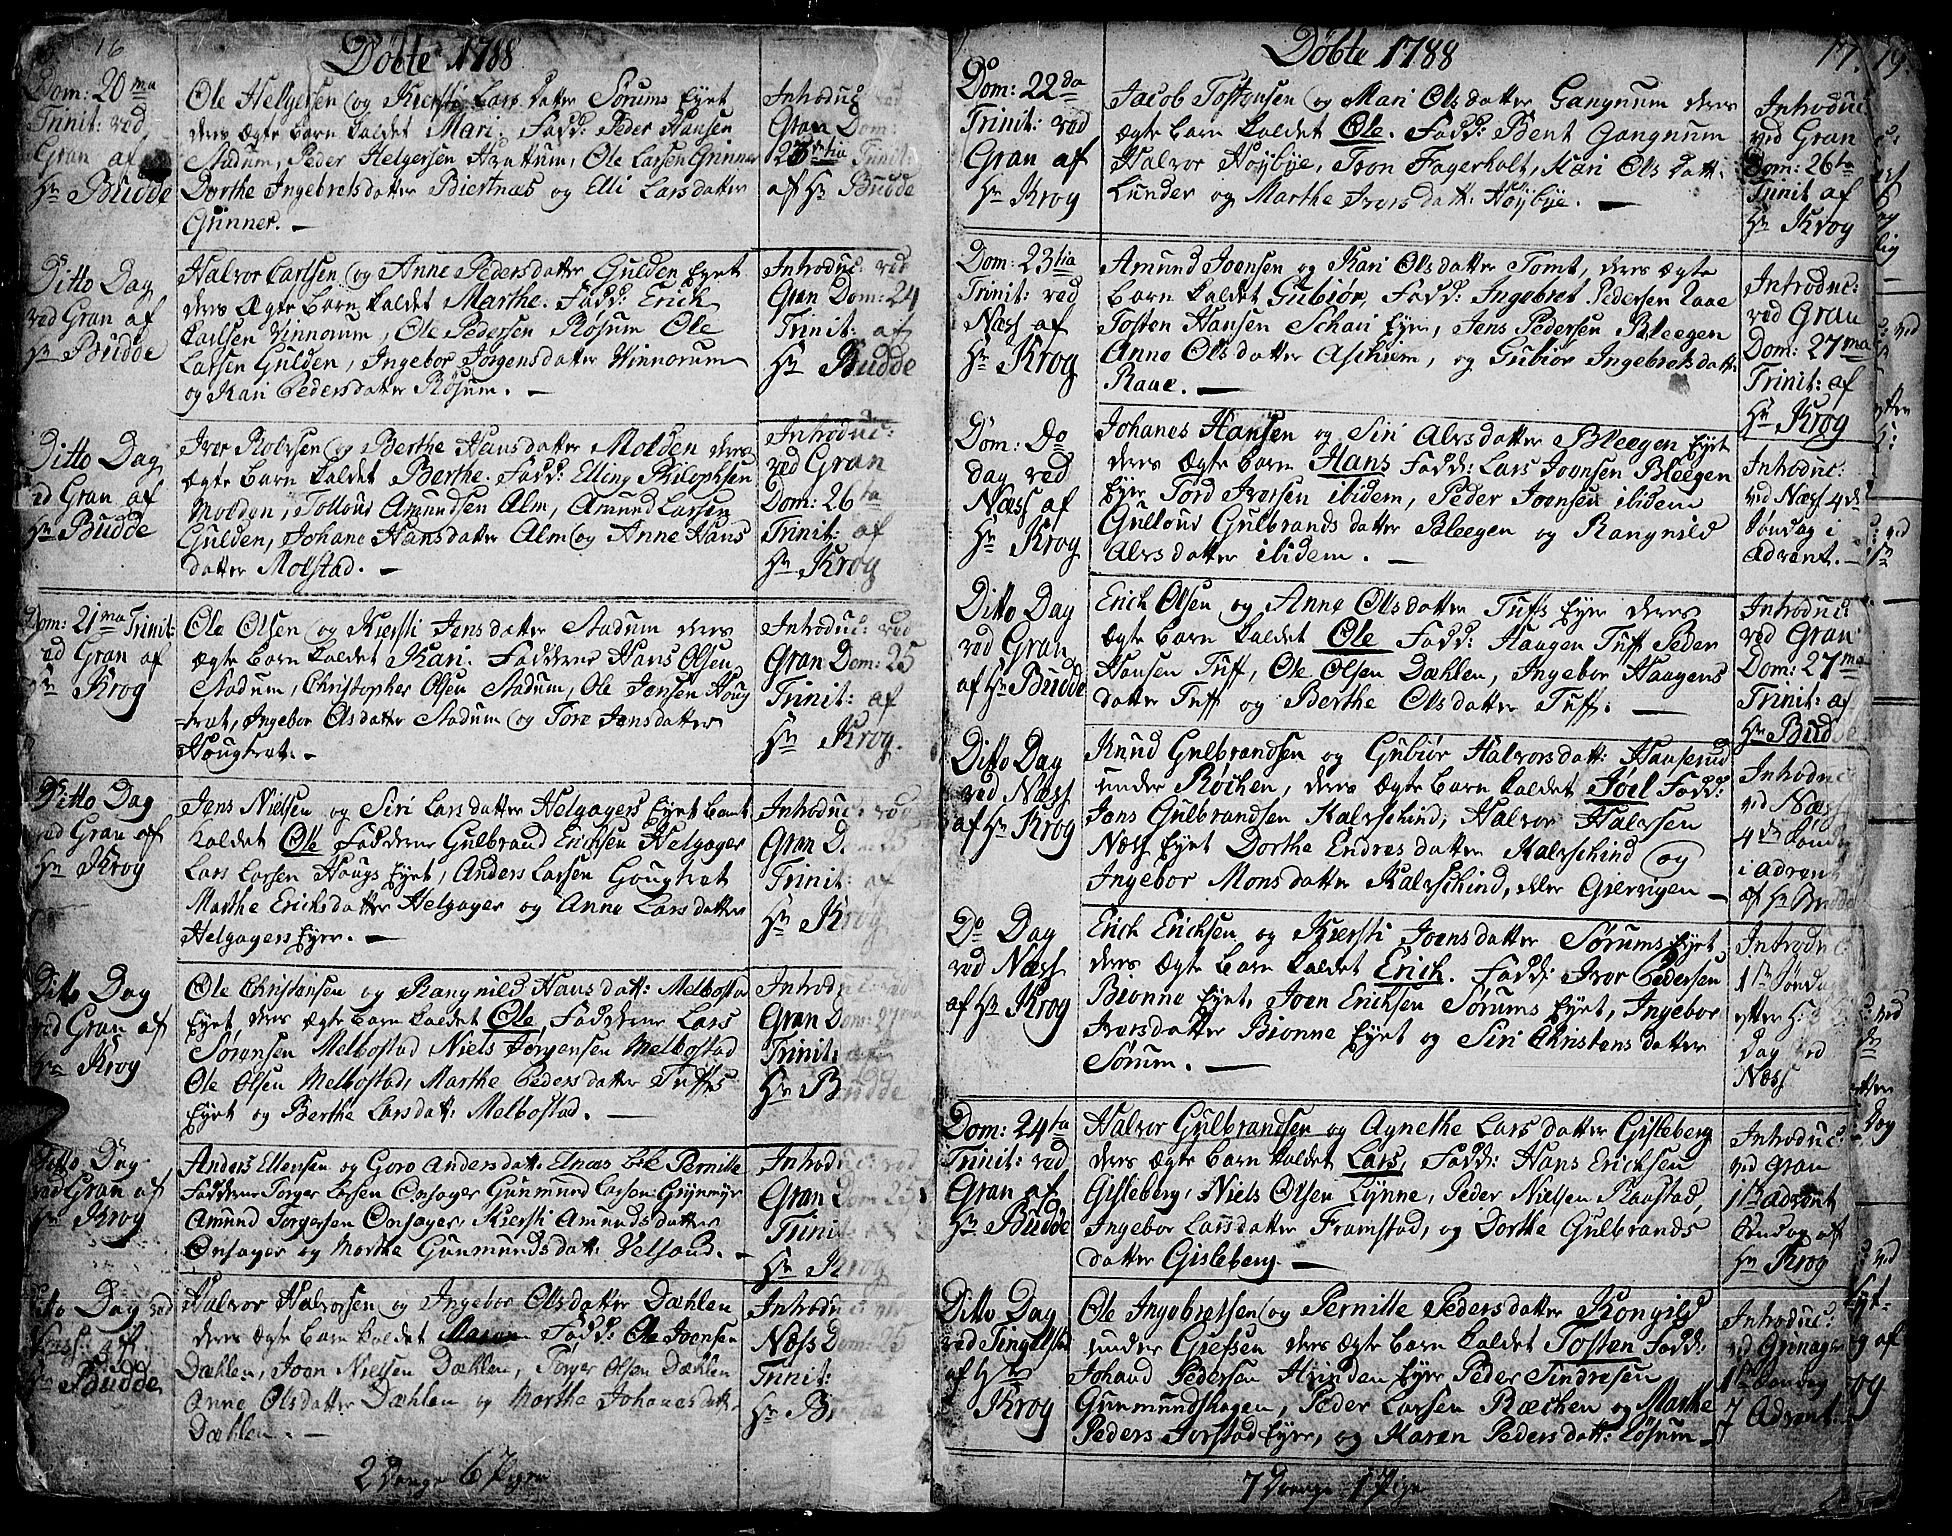 16
Döbte 1788
Dom: 20 ma
Trinit: ved
Gran af
Hr Budde
Ole Helgersen og Kiersti Lars datter Sörums Eyet
deres Ægte barn kaldet Mari. Fadd: Peder Hansen
Stadum, Peder Helgersen Hvattum, Ole Larsen Grinner
Dorthe Ingebretsdatter Biertnæs og Elli Larsdatter
Grinner. –
Introduc
Gran Dom:
23 tia Trinit:
af Hr Budde
Ditto Dag
ved Gran af
Hr Budde
Halvor Carlsen og Anne Pedersdatter Gulden Eyet
deres Ægte barn kaldet Marthe. Fadd: Erich
Carlsen Vinnorum, Ole Pedersen Rösum Ole
Larsen Gulden, Ingebor Jörgensdatter Winnorum
og Kari Pedersdatter Rösum. –
Introduc: ved
Gran Dom: 24
Trinit: af
Hr Budde
Ditto Dag
ved Gran af
Hr Budde
Iver Rolvsen og Berthe Hansdatter Molden deres
Ægte barn kaldet Berthe. Fadd: Elling Philophsen
Molden, Tollouv Amundsen Alm, Amund Larsen
Gulden, Johane Hansdatter Alm og Anne Hans
datter Molstad. –
Introduc:
ved Gran
Dom: 26 ta
Trinit: af
Hr Krog
Dom: 21 ma Trinit:
ved Gran af
Hr Krog
Ole Olsen og Kiersti Jensdatter Stadum deres
Ægte barn kaldet Kari. Fadderne Hans Olsen
Stadum, Christopher Olsen Stadum, Ole Jensen Houg
=tvet, Ingebor Olsdatter Stadum og Tore Jensdatter
Hougtvet. –
Introduc: ved
Gran Dom: 25
Trinit: af
Hr Krog.
Ditto Dag
ved Gran af
Hr Krog
Jens Nielsen og Siri Larsdatter Helgagers Eyet barn
kaldet Ole Fadderne Gulbrand Erichsen Helgager
Lars Larsen Hougs Eyet, Anders Larsen Hougtvet
Marthe Erichsdatter Helgager og Anne Larsdatter
Helgagers Eyer. –
Introduc: ved
Gran D
Trinit: af
Hr Krog
Ditto Dag
ved Gran af
Hr Krog
Ole Christensen og Rangnild Hans datt: Melbostad
Eyet, deres Ægte barn kaldet Ole, Fadderne Lars
Sörensen Melbostad Niels Jörgensen Melbostad
Ole Olsen Melbostad, Marthe Pedersdatter Tuffs
Eyet og Berthe Larsdatt: Melbostad. –
Introduc: ved
Gran Dom: 27 ma
Trinit:
Hr Budde
Ditto Dag
ved Gran af
Hr Krog
Anders Ellensen og Goro Andersdatt: Elnæs Pernille
Fadderne Torger Onsager Gunmund Larsen Grynmyr
Amund Torgersen Onsager Kiersti Amundsdatter
Onsager og Marthe Gunmundsdatt: Velsand. –
Introduc: ved
Gran Dom: 25
Trinit
Hr Krog
Ditto Dag ved
Næss: af
Hr Budde
Halvor Halvorsen og Ingebor Olsdatter Dæhlen
deres Ægte barn kaldet Maren Fadd: Ole Joensen
Dæhlen, Joen Nielsen Dæhlen, Torger Olsen Dæhlen
Anne Olsdatter Dæhlen og Marthe Johanesdatt:
Dæhlen. –
Introduc ved
Næss Dom:
Trinit:
Hr B
2 Drenge 6 Piger
Döbte 1788
17.
Dom: 22 da
Trinit: ved
Gran af
Hr Krog
Jacob Tostensen og Mari Olsdatter Gangnum deres
Ægte barn kaldet Ole. Fadd: Bent Gangnum
Halvor Höybye, Joen Fagerholt, Kari Ols Datt:
Lunder og Marthe Iversdatt: Höybye. –
Introduc:
ved Gran
Dom: 26 ta
Trinit af
Hr Krog
Dom: 23 tia
Trinit: ved
Næss af
Hr Krog
Amund Joensen og Kari Olsdatter Tomt, deres Ægte
barn kaldet Gubiör, Fadd: Ingebret Pedersen Raae
Tosten Hansen Schari Eyer, Jens Pedersen Bleegen
Anne Olsdatter Aschim, og Gubiör Ingebretsdatt:
Raae. –
Introduc:
ved Gran
Dom: 27 ma
Trinit: af
Hr Krog
Dom: Do
dag ved
Næss af
Hr Krog
Johanes Hansen og Siri Alvsdatter Bleegen Eyet
deres Ægte barn Hans Fadd: Lars Joensen Bleegen
Eyer Tord Iversen ibidem, Peder Joensen ibidem
Gulloud Gulbrandsdatter Bleegen og Rangnild
Alvsdatter ibidem. –
Introduc:
ved Næss 4de
Söndag i
Advent. –
Ditto Dag
ved Gran
af Hr Budde
Erich Olsen og Anne Olsdatter Tufs Eyer deres
Ægte barn kaldet Ole Fadd: Haagen Tuff Peder
Hansen Tuff, Ole Olsen Dæhlen, Ingebor Haagens
datter Tuff og Berthe Olsdatter Tuff. –
Introduc:
ved Gran
Dom: 27 ma
Trinit: af
Hr Budde
Ditto Dag
ved Næss
af Hr Krog
Knud Gulbrandsen og Gubiör Halvorsdatt: Haaserud
under Röchen, deres Ægte barn kaldet Joel Fadd:
Jens Gulbrandsen Kalvschind, Halvor Halvsen
Næss Eyet Dorthe Endresdatter Kalvschind og
Ingebor Monsdatter Kalvschind, eller Giervigen –
Introduc
ved Næss
4de Söndag
i Advent
af Hr Budde
Do Dag
ved Næss
af Hr Krog
Erich Erichsen og Kiersti Joensdatter Sörums Eyet,
deres Ægte barn kaldet Erich. Fadd: Iver Pedersen
Bionne Eyet, Joen Erichsen Sörums Eyet, Ingebor
Iversdatter Bionne Eyet og Siri Christensdatter
Sörum. –
Introduc
1te Söndag
efter H: 3
dag ved
Næss
Dom: 24 ta
Trinit: ved
Gran af
Hr Budde
Halvor Gulbrandsen og Agnethe Larsdatter Gisleberg
deres Ægte barn kaldet Lars, Fadd: Hans Erichsen
Gisleberg, Niels Olsen Lynne, Peder Nielsen Flaastad,
Ingebor Larsdatter Framstad, og Dorthe Gulbrands
datter Gisleberg. –
Introduc:
ved Gran
1te Advent
Söndag af
Hr Krog
Ditto Dag
ved Tingelstad
af Hr
Krog
Ole Ingebretsen og Pernille Pedersdatter Kongild
under Giefsen deres Ægte barn kaldet Tosten Fadd:
Johand Pedersen Hvinden Eyer Peder Sindresen
Gunmundshagen, Peder Larsen Ræchen og Marthe
Peders Jorstad Eyer, og Karen Pedersdatt: Lösum –
Introduc:
ved Grinager
1te Söndag
i Advent
7 Drenge 1 Pige